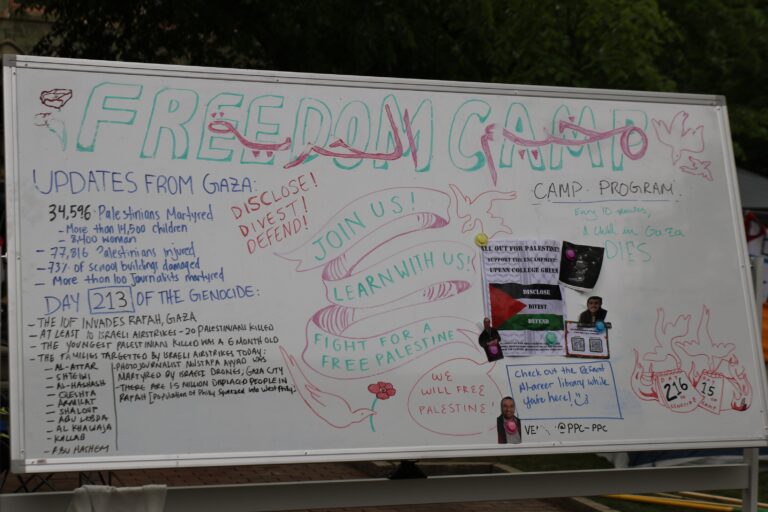 FREEDOM CAMP
مخيم الحرية
UPDATES FROM GAZA:
34,596 Palestinians Martyred
- More than 14,500 children
- 8,400 woman
- 77,816 Palestinians injured
- 73% of school buildings damaged
- More than 100 journalists martyred
DAY 213 OF THE GENOCIDE:
- THE IOF INVADES RAFAH, GAZA
- AT LEAST 10 ISRAELI AIRSTRIKES - 20 PALESTINIANS KILLED
- THE YOUNGEST PALESTINIAN KILLED WAS A 6 MONTH OLD
- THE FAMILIES TARGETED BY ISRAELI AIRSTRIKES TODAY:
- AL-ATTAR
- SHTEIWI
- AL-HASHASH
- QESHTA
- ARMILAT
- SHALOUF
- ABU LEBDA
- AL KHAWAJA
- KALLAB
- ABU HASHEM
- PHOTOJOURNALIST MUSTAFA AYYAD WAS
MARTYRED BY ISRAELI DRONES, GAZA CITY
- THERE ARE 1.5 MILLION DISPLACED PEOPLE IN
RAFAH
DISCLOSE!
DIVEST!
DEFEND!
JOIN US!
LEARN WITH US!
FIGHT FOR A
FREE PALESTINE!
WE
WILL FREE
PALESTINE!
CAMP PROGRAM
Every 10 minutes,
a child in Gaza
DIES
ALL OUT FOR PALESTINE!
SUPPORT THE ENCAMPMENT
UPENN COLLEGE GREEN
DISCLOSE
DIVEST
DEFEND
Check out the Refaat
Alareer library while
you're here! :)
@PPC-PPC
DAY
216
OF
GENOCIDE
DAY
15
OF
CAMP